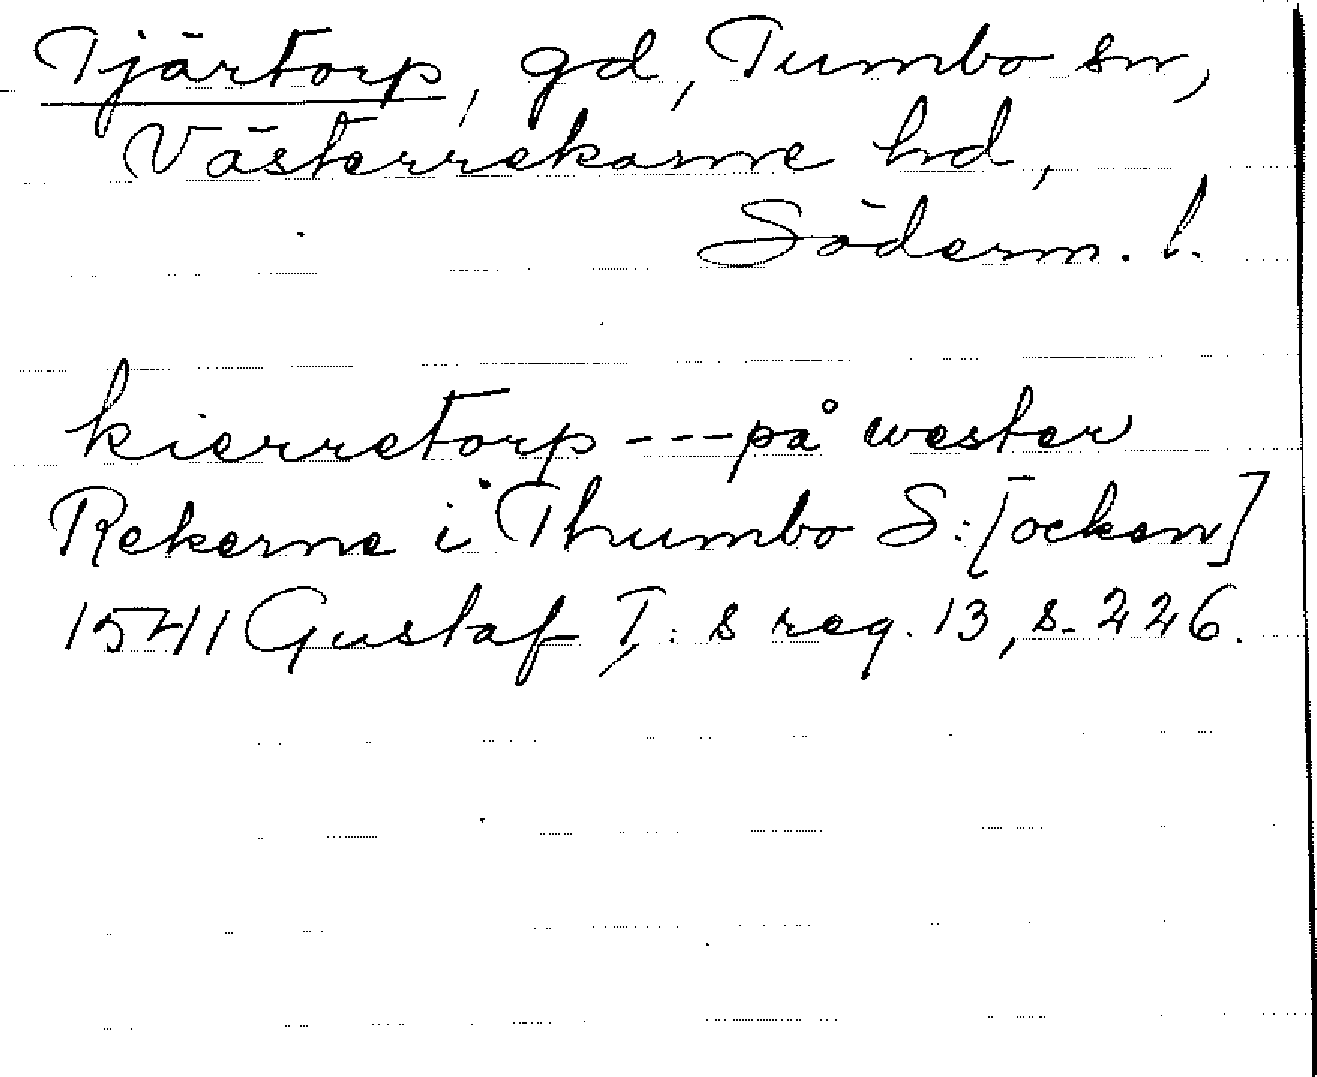 Tjärtorp, gd, Tumbo sn,
Västerrekarne hd,
Söderm. l.
kierretorp --- på wester
Rekerne i Thumbo S:[ocken]
1541 Gustaf I:s reg. 13, s. 226.